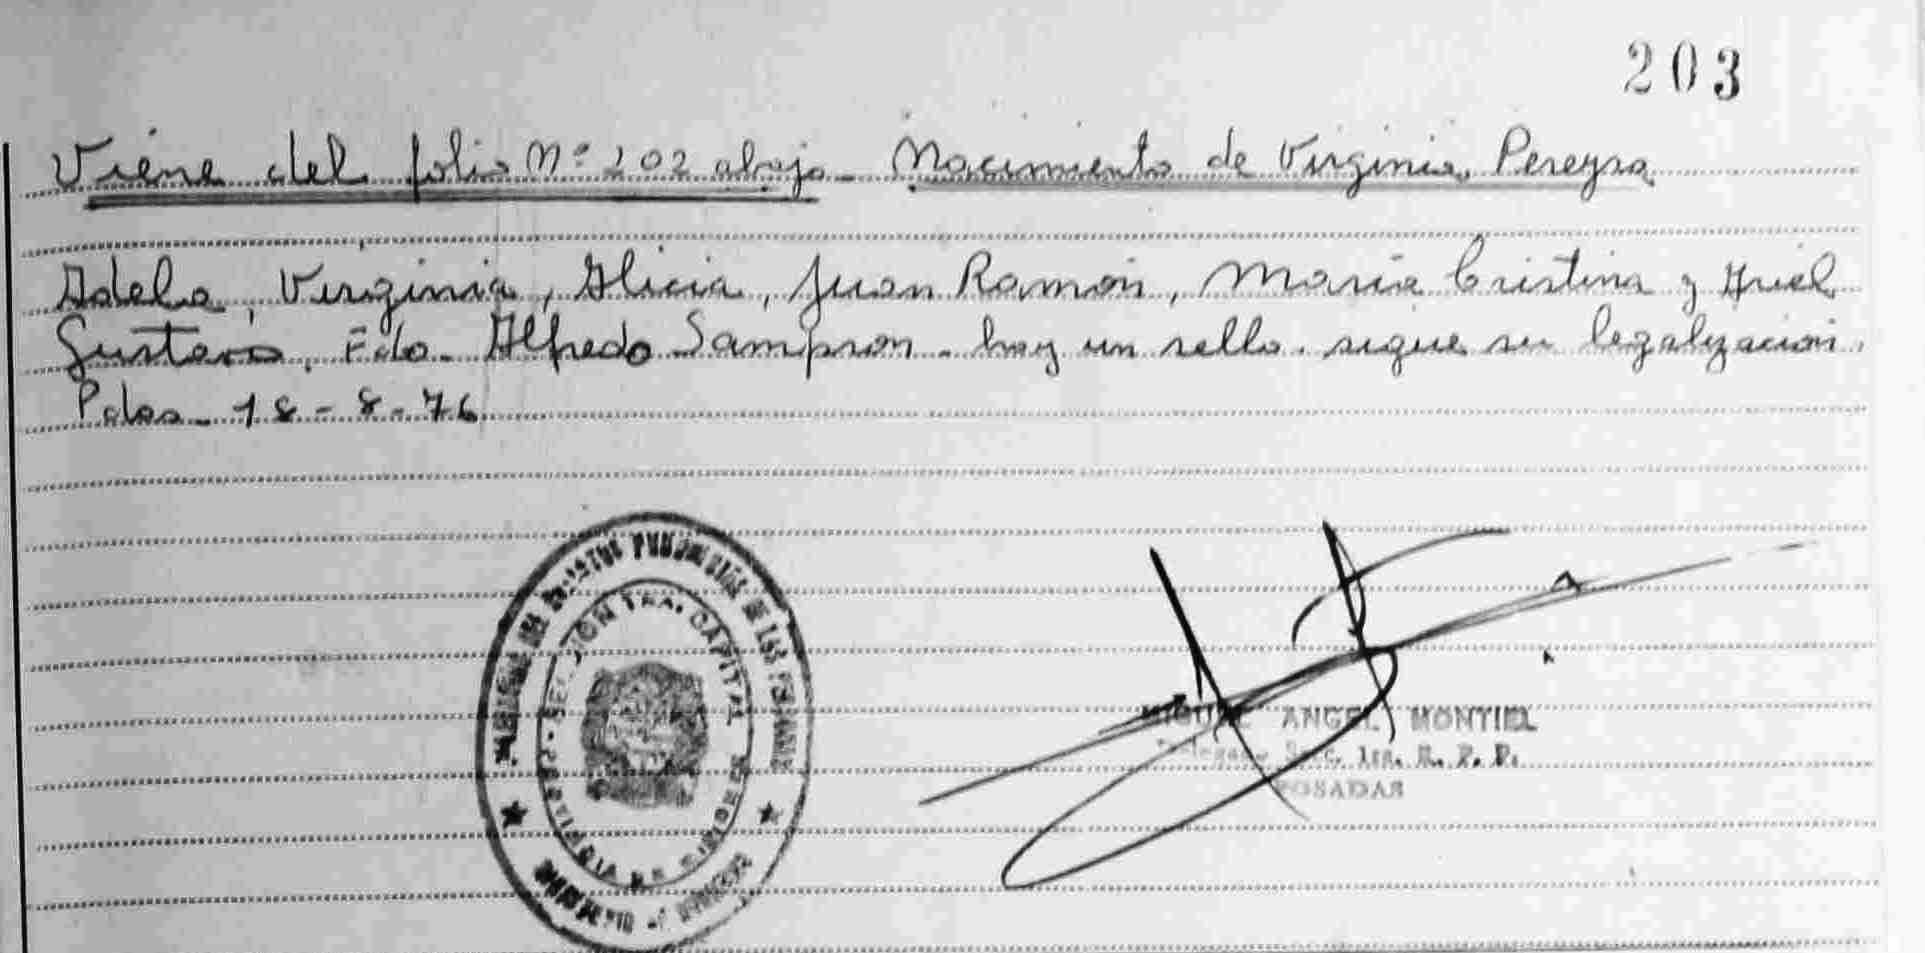 203
Viene del folio Nº 202 abajo - Nacimiento de Virginia Pereyra
Adela, Virginia, Alicia, Juan Ramón, María Cristina y Ariel
Gustavo. Fdo. Alfredo Sampson - hay un sello. sigue su legalización.
Pdas - 18 - 8 - 76
DE LAS PERSONAS
SECCION 1ra. CAPITAL
PROVINCIA DE MISIONES
MIGUEL ANGEL MONTIEL
Secc. 1ra. R. P. P.
POSADAS